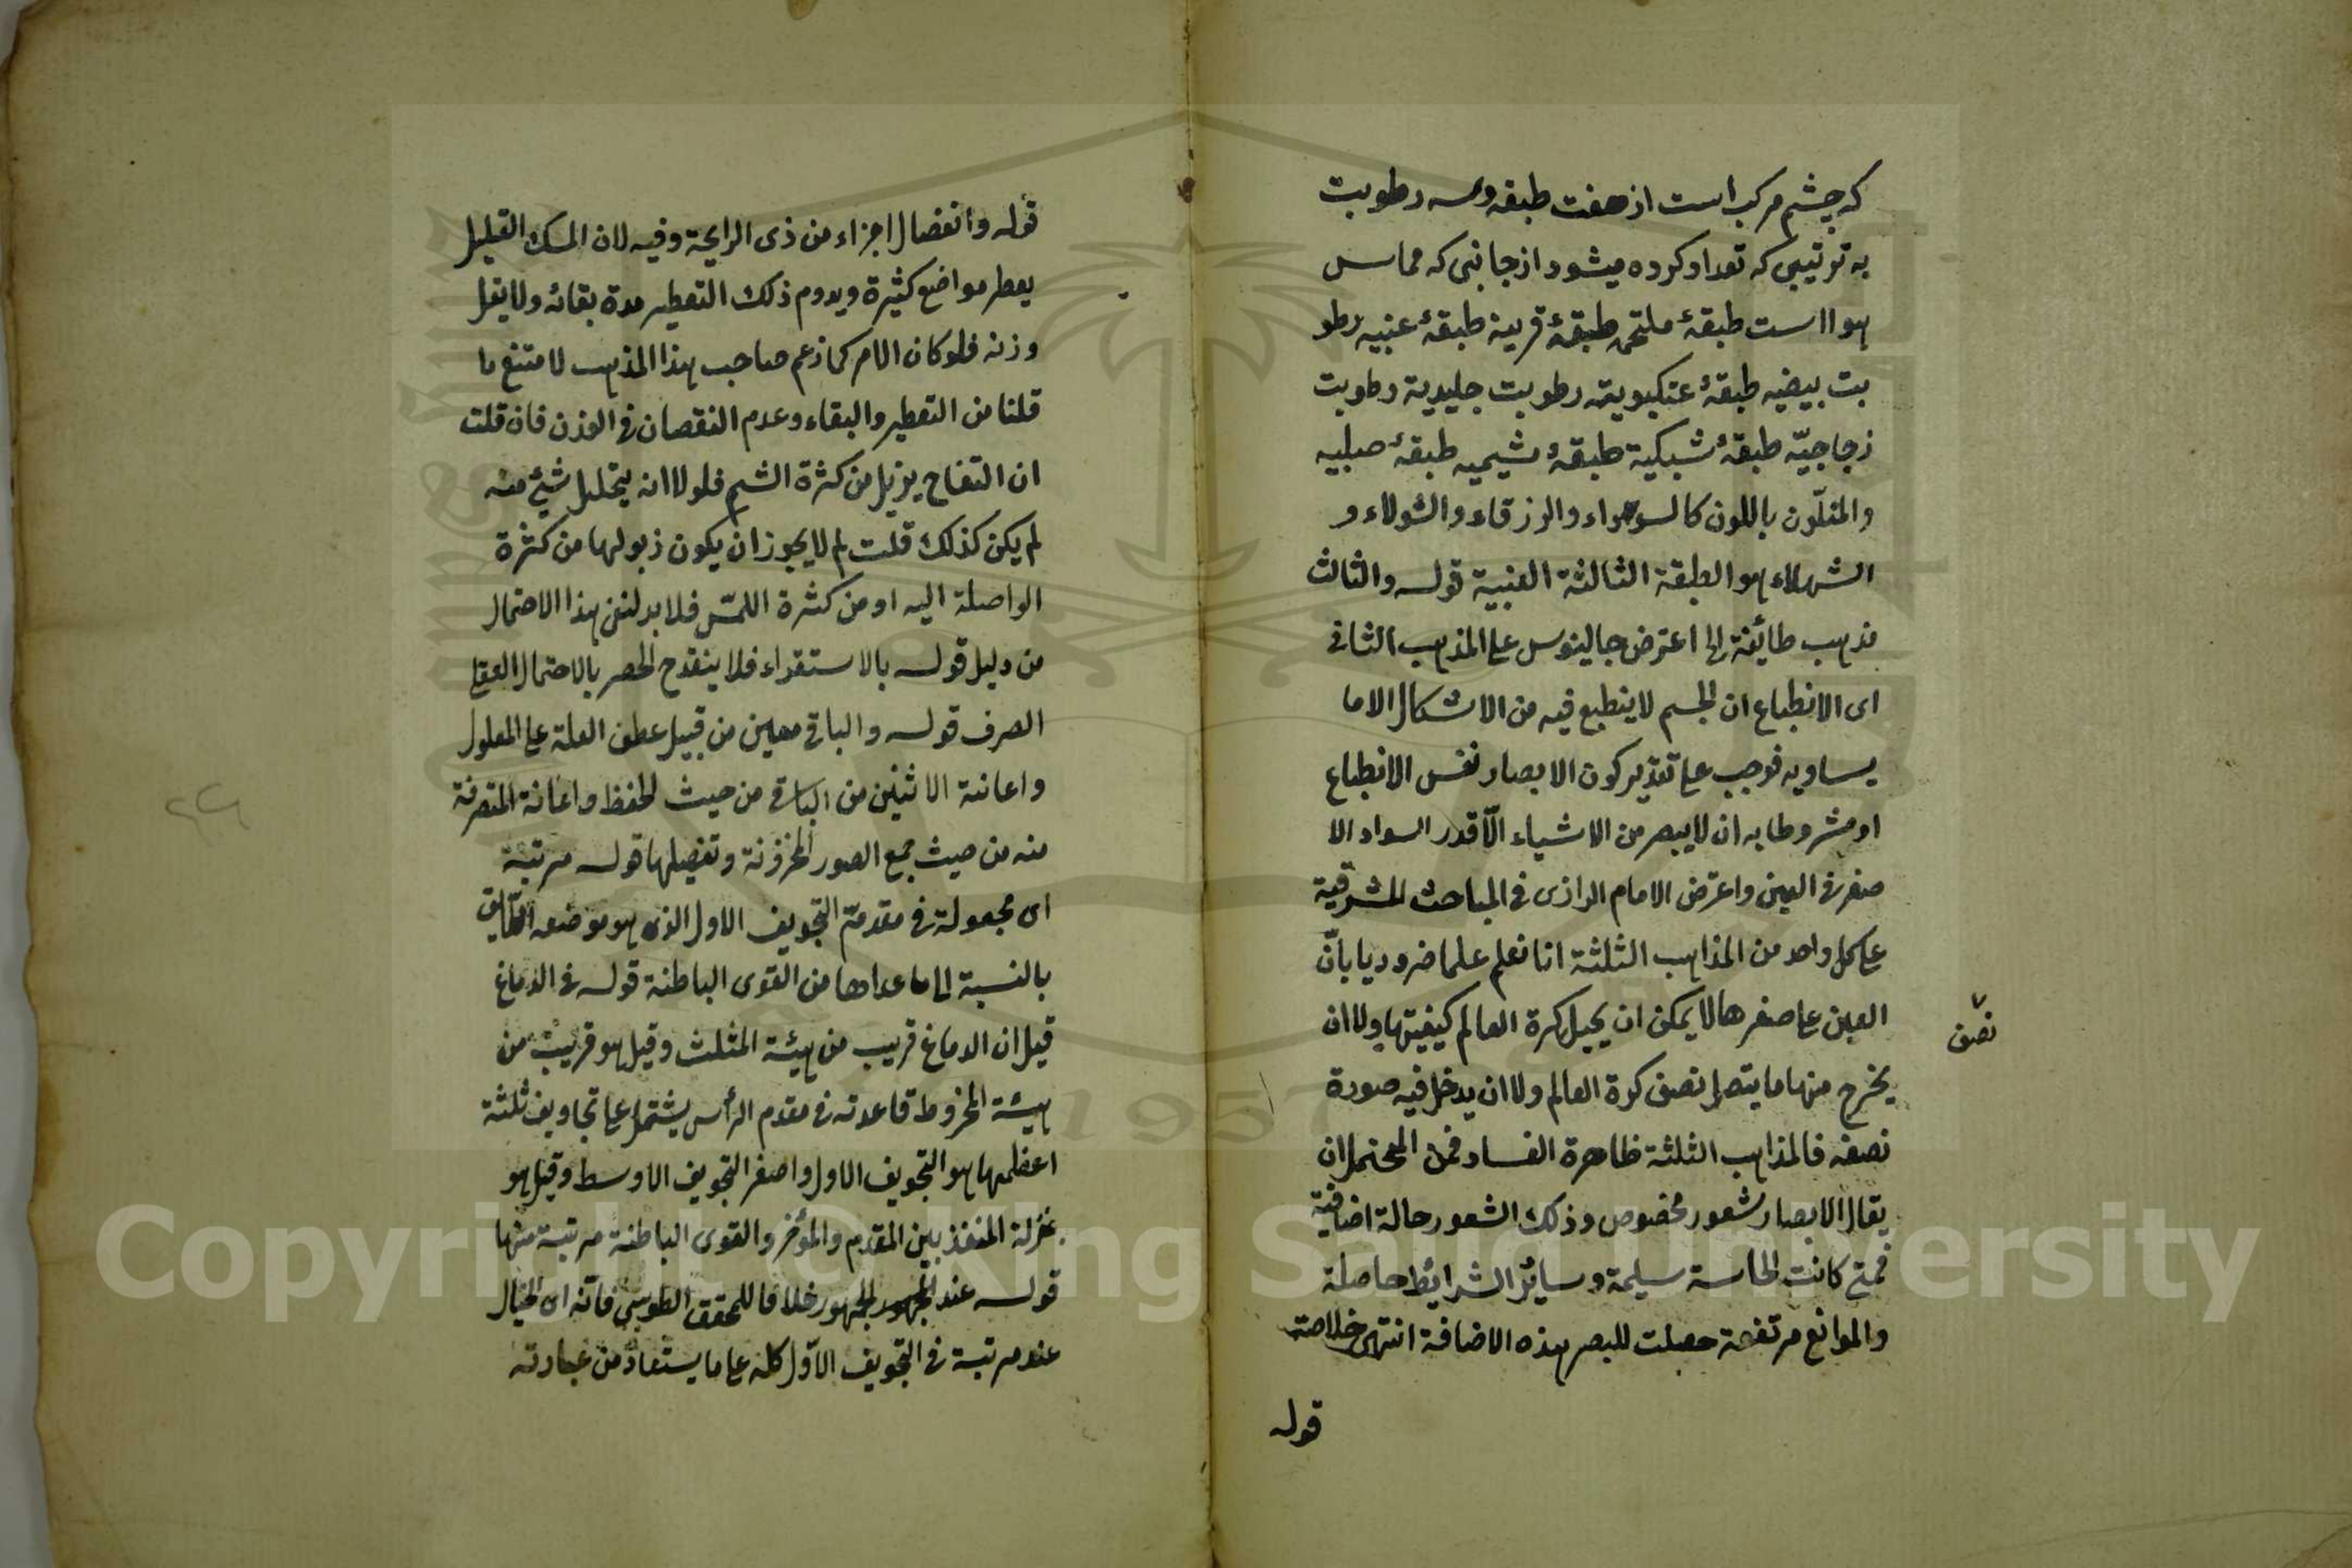 که چشم مرکب است از هفت طبقه وسه رطوبت
به ترتیبی که تعداد کرده میشود از جانبی که مماس
هوا است طبقهٔ ملتحمه طبقهٔ قرینه طبقهٔ عنبیه رطو
بت بیضیه طبقهٔ عنکبوتیه رطوبت جلیدیة رطوبت
زجاجیّه طبقهٔ شبکیة طبقهٔ مشیمیه طبقهٔ صلبیه
والمتلّون باللون كالسوداء والزرقاء والشولاء و
الشهلاء هو الطبقة الثالثة العنبية قوله والثالث
مذهب طائفة الخ اعترض جالينوس على المذهب الثانى
اى الانطباع ان الجسم لا ينطبع فيه من الاشكال الا ما
يساويه فوجب على تقدير كون الابصار نفس الانطباع
او مشروطا به ان لا يبصر من الاشياء الّا قدر السواد الا
صغر فى العين واعترض الامام الرازى فى المباحث المشرقية
على كل واحد من المذاهب الثلثة انا نعلم علما ضروريا بانّ
العين على صغرها لا يمكن ان يحيل كرة العالم كيفيتها ولا ان
نصف
يخرج منها ما يتصل نصف كرة العالم ولا ان يدخل فيه صورة
نصفه فالمذاهب الثلثة ظاهرة الفساد فمن المحتمل ان
يقال الابصار شعور مخصوص وذلك الشعور حالة اضافيّة
فمتى كانت الحاسة سليمة وسائر الشرايط حاصلة
والموانع مرتفعة حصلت للبصر هذه الاضافة انتهى خلاصته
قوله
قوله وانفصال اجزاء من ذى الرايحة وفيه لان المسك القليل
يعطر مواضع كثيرة ويدوم ذلك التعطير مدة بقائه ولا يقل
وزنه فلو كان الامر كما زعم صاحب هذا المذهب لامتنع ما
قلنا من التعطير والبقاء وعدم النقصان فى الوزن فان قلت
ان التفاح يزبل من كثرة الشم فلولا انه يتحلل شئ منه
لم يكن كذلك قلت لم لا يجوز ان يكون ذبولها من كثرة
الواصلة اليه او من كثرة اللمّس فلا بد لنفى هذا الاحتمال
من دليل قوله بالاستقراء فلا ينقدح الحصر بالاحتمال العقلى
الصرف قوله والباقى معين من قبيل عطف العلة على المعلول
واعانة الاثنين من الباقى من حيث الحفظ واعانة المتصرفة
منه من حيث جمع الصور المخزونة وتفصيلها قوله مرتبة
اى مجعولة فى مقدمة التجويف الاول الذى هو موضعه
بالنسبة الى ما عداها من القوى الباطنة قوله فى الدماغ
قيل ان الدماغ قريب من هيئة المثلث وقيل هو قريب من
هيئة المخروط قاعدته فى مقدم الرأس يشتمل على تجاويف ثلثة
اعظمها هو التجويف الاول واصغر التجويف الاوسط وقيل هو
بمنزلة المنفذ بين المقدم والمؤخر والقوى الباطنة مرتبة منها
قوله عند الجمهور خلافا للمحقق الطوسى فانّه اى الخيال
عنده مرتبة فى التجويف الاوّل كله على ما يستفاد من عبارته
Copyright © King Saud University
1957